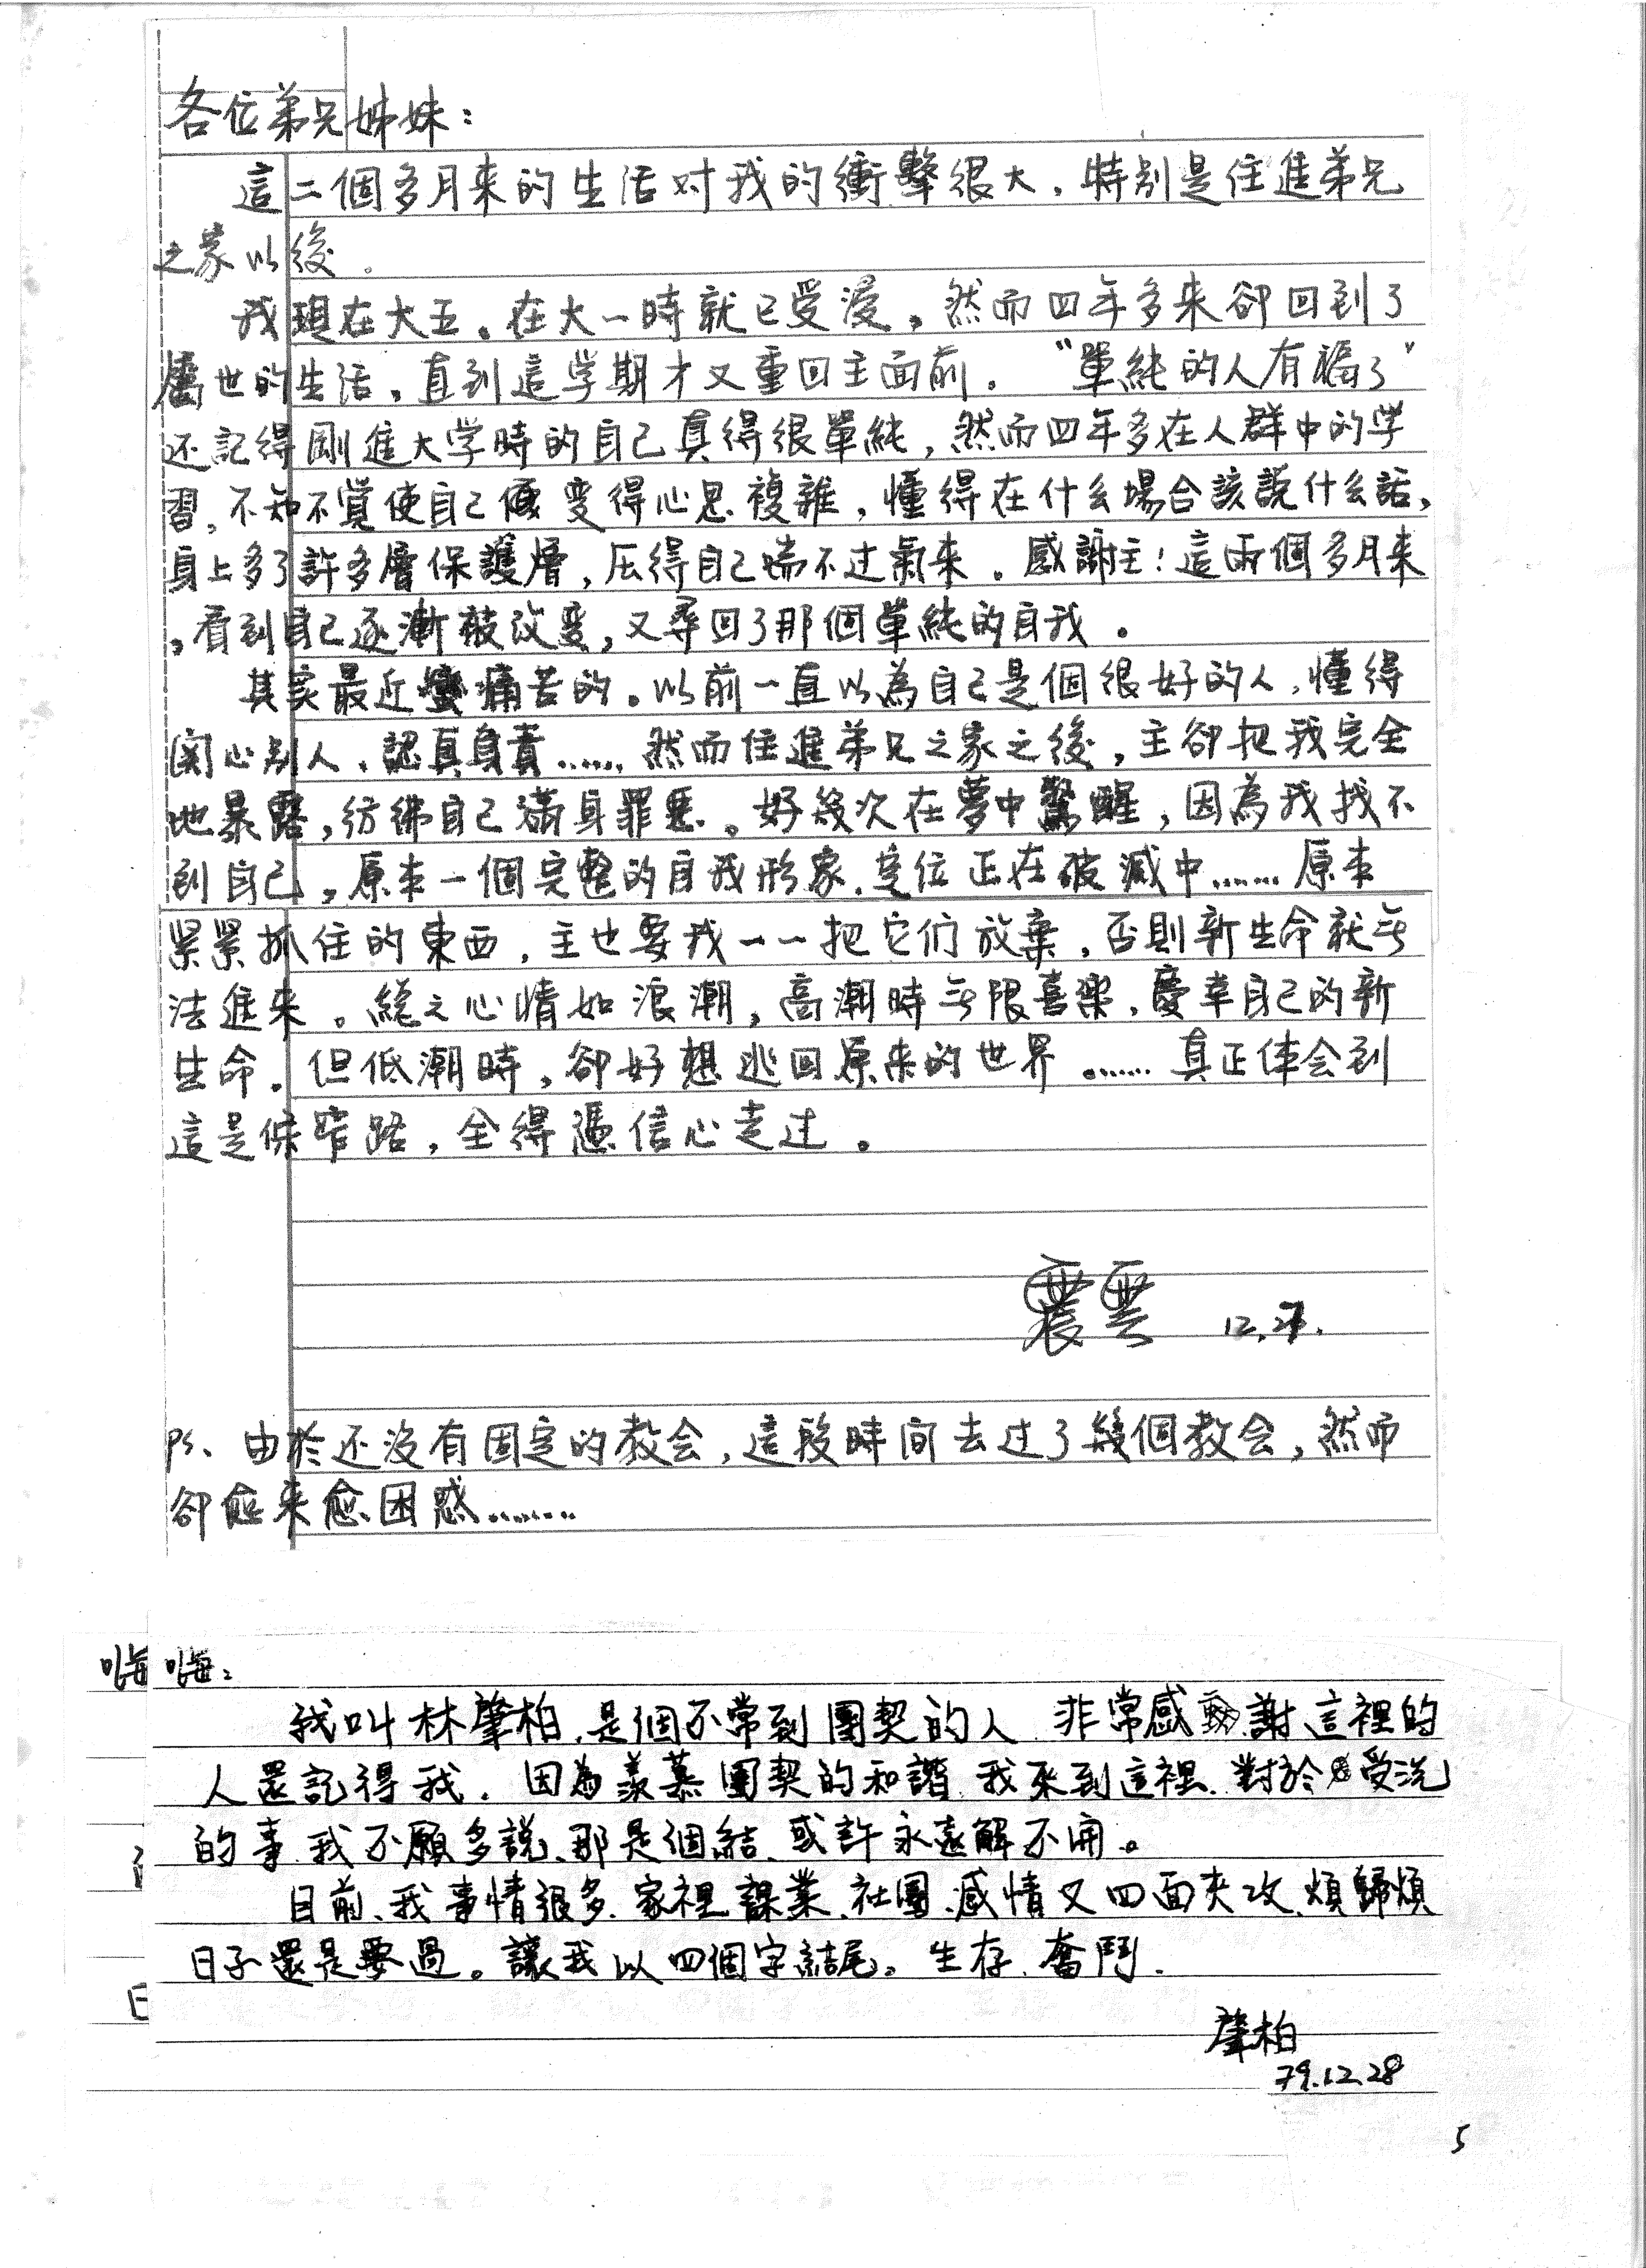 各位弟兄姊妹：
這二個多月来的生活对我的衝擊很大，特别是住進弟兄
之家以後。
我現在大五。在大一時就已受浸，然而四年多来卻回到了
屬世的生活，直到這学期才又重回主面前。“單純的人有福了”
还記得剛進大学時的自己真得很單純，然而四年多在人群中的学
習，不知不覚使自己变得心思複雜，懂得在什么場合該說什么話，
身上多了許多層保護層，压得自己喘不过氣来。感謝主！這兩個多月来
，看到自己逐漸被改变，又尋回了那個單純的自我。
其实最近蠻痛苦的。以前一直以為自己是個很好的人，懂得
関心别人、認真負責……然而住進弟兄之家之後，主卻把我完全
地暴露，彷彿自己滿身罪惡。好幾次在夢中驚醒，因為我找不
到自己，原来一個完整的自我形象、定位正在破滅中……原本
緊緊抓住的東西，主也要我一一把它们放棄，否則新生命就无
法進来。總之心情如浪潮，高潮時无限喜樂，慶幸自己的新
生命。但低潮時，卻好想逃回原来的世界。……真正体会到
這是條窄路，全得憑信心走过。
震雲 12.27.
PS、由於还没有固定的教会，這段時间去过了幾個教会，然而
卻愈来愈困惑……
嗨 嗨：
我叫林肇柏，是個不常到團契的人，非常感謝這裡的
人還記得我．因為羨慕團契的和諧，我来到這裡．對於受洗
的事，我不願多說、那是個結、或許永遠解不開。
目前、我事情很多．家裡、課業、社團、感情又四面夾攻，煩歸煩
日子還是要過。讓我以四個字結尾。生存．奮鬥．
肇柏
79.12.28
5